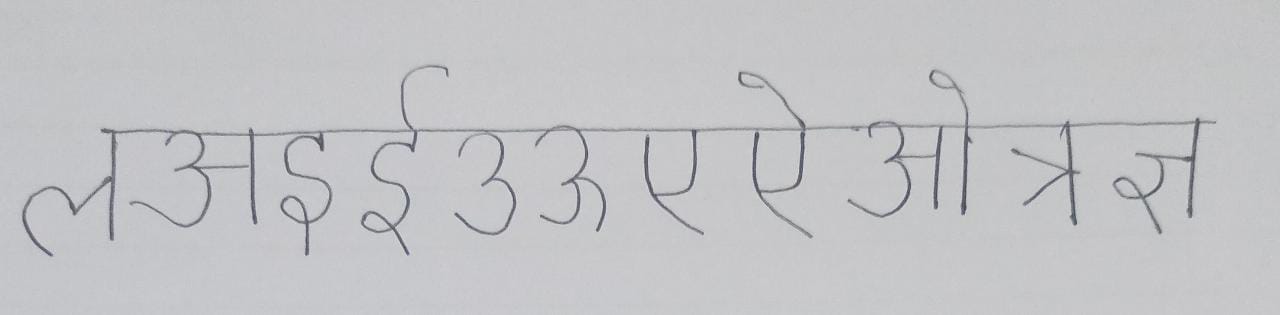 लअइईउऊएऐओत्रज्ञ